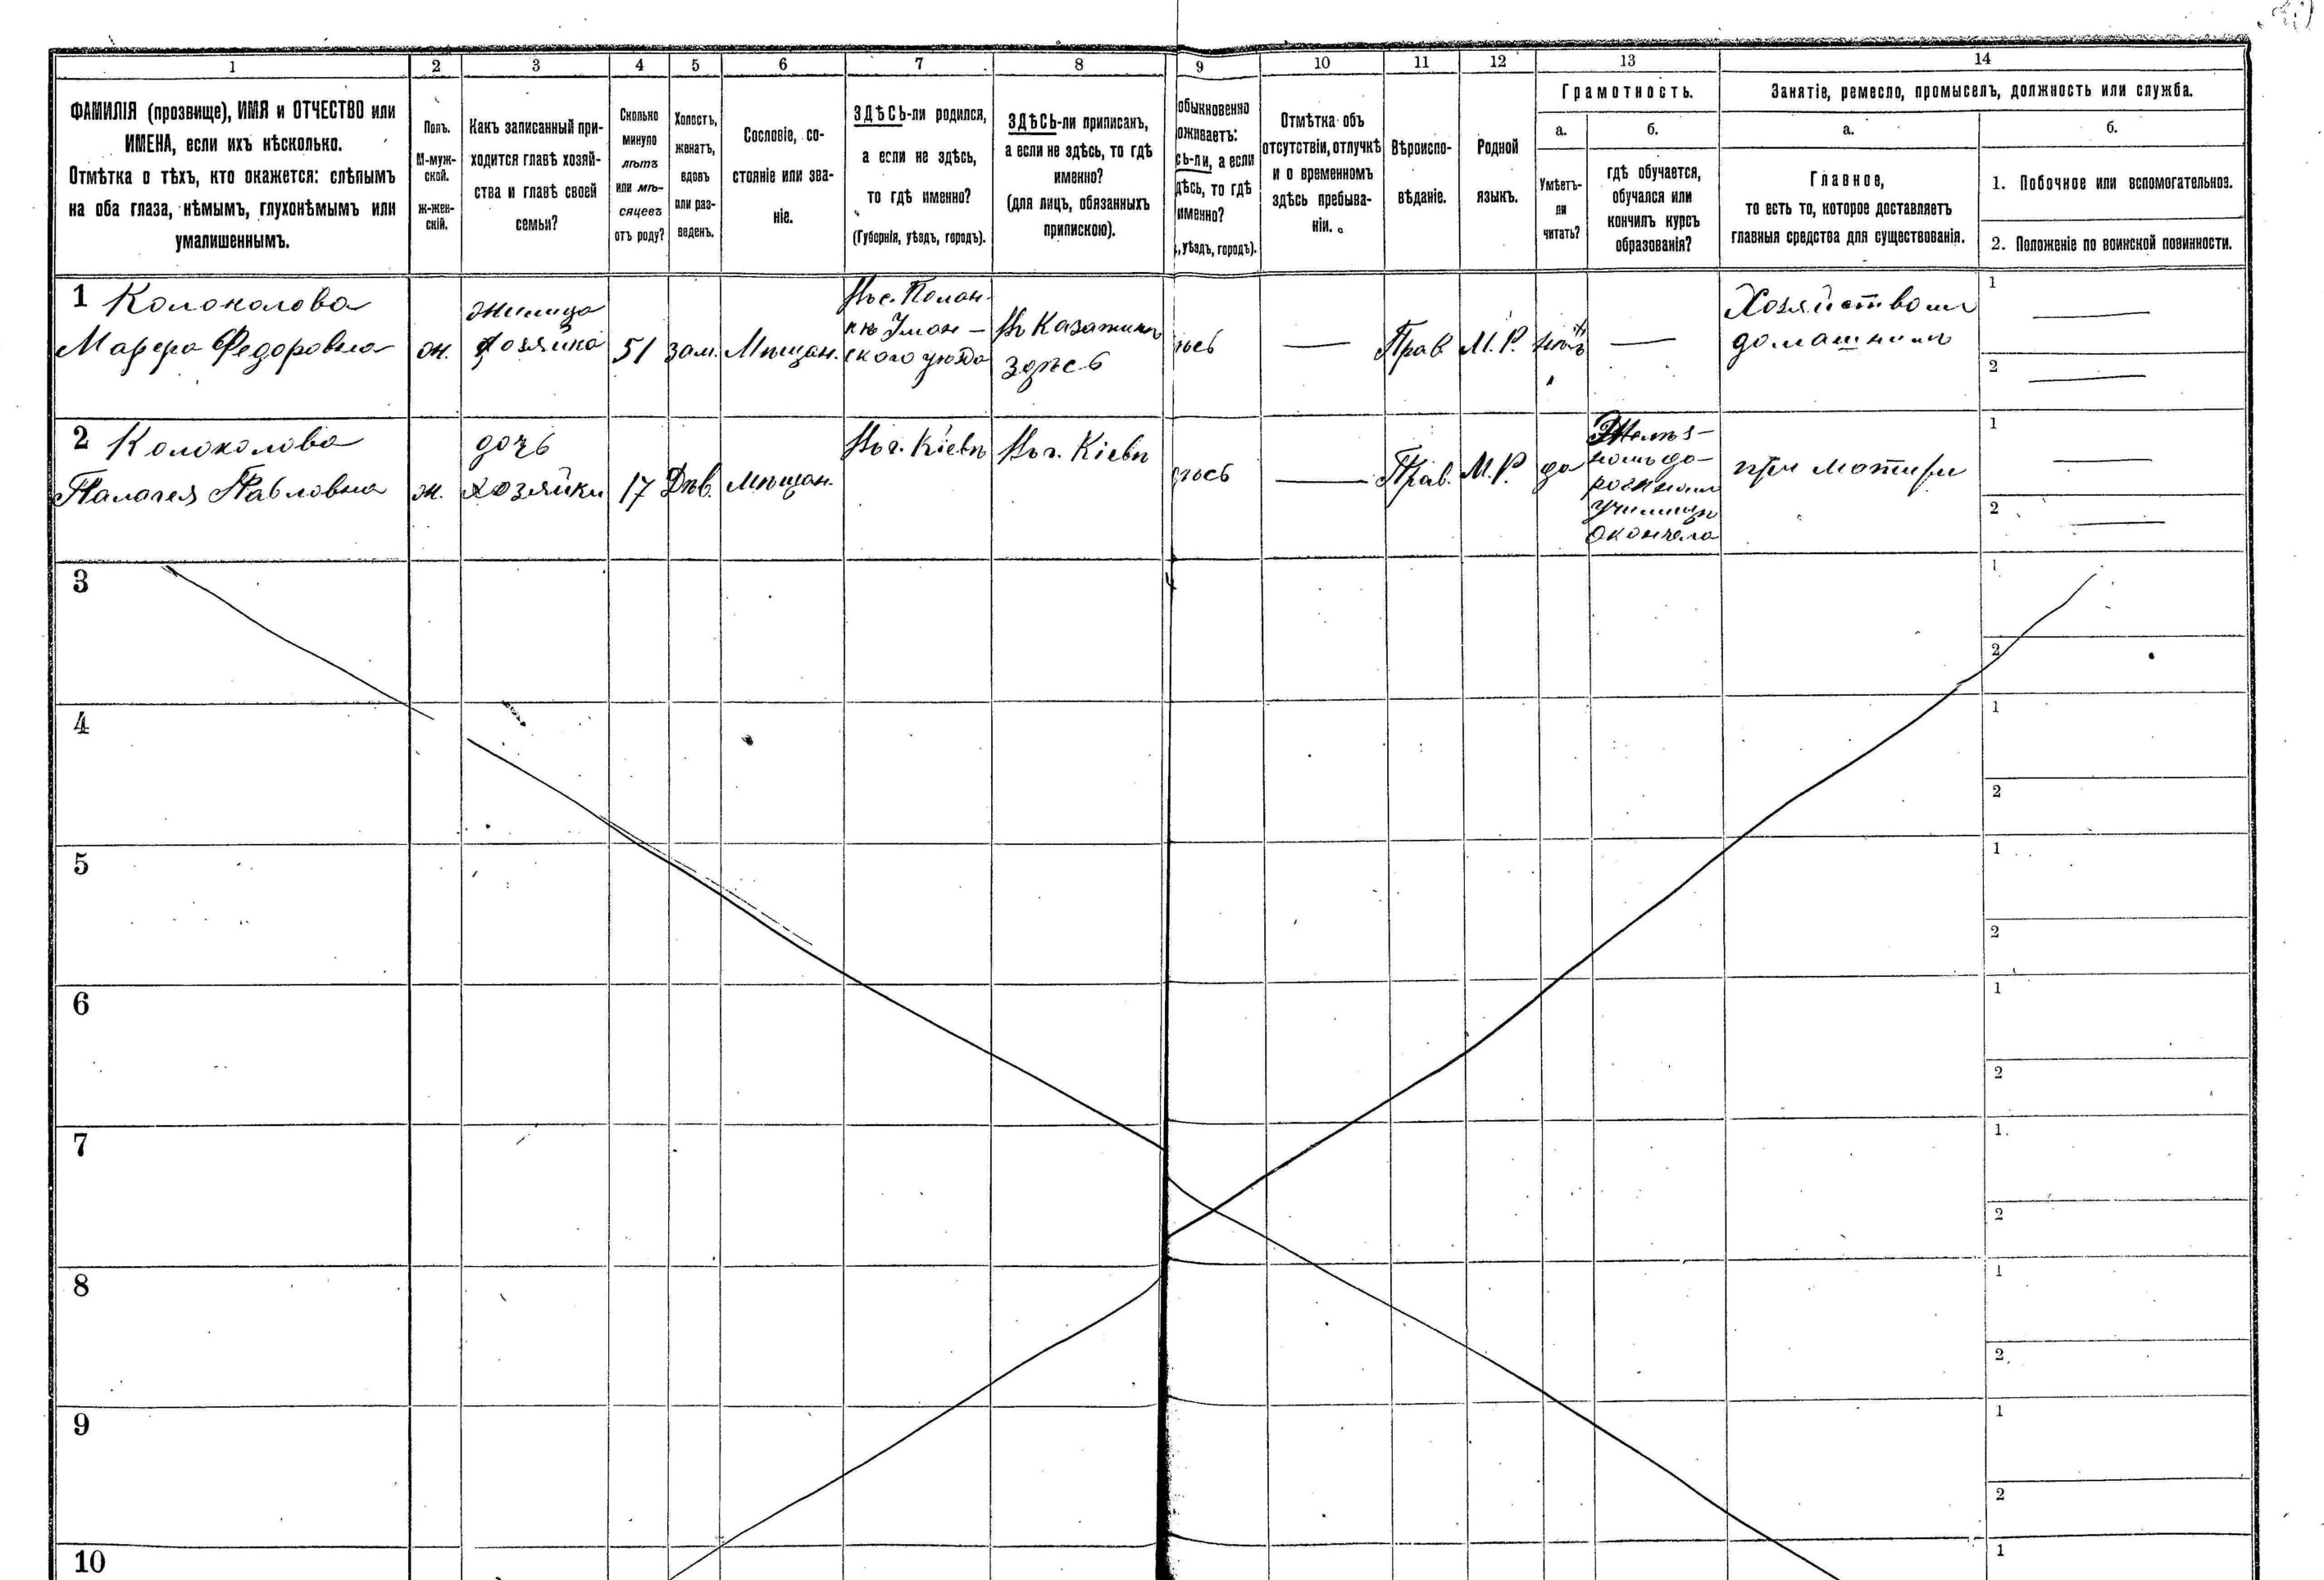 1
2
3
4
5
6
7
8
9
10
11
12
13
14
ФАМИЛІЯ (прозвище), ИМЯ и ОТЧЕСТВО или
ИМЕНА, если ихъ нѣсколько.
Отмѣтка о тѣхъ, кто окажется: слѣпымъ
на оба глаза, нѣмымъ, глухонѣмымъ или
умалишеннымъ.
Полъ.
М-муж-
ской.
ж-жен-
скій.
Какъ записанный при-
ходится главѣ хозяй-
ства и главѣ своей
семьи?
Сколько
минуло
лѣтъ
или мѣ-
сяцевъ
отъ роду?
Холостъ,
женатъ,
вдовъ
или раз-
веденъ.
Сословіе, со-
стояніе или зва-
ніе.
ЗДѢСЬ-ли родился,
а если не здѣсь,
то гдѣ именно?
(Губернія, уѣздъ, городъ).
ЗДѢСЬ-ли приписанъ,
а если не здѣсь, то гдѣ
именно?
(для лицъ, обязанныхъ
припискою).
обыкновенно
оживаетъ:
сь-ли, а если
дѣсь, то гдѣ
именно?
, уѣздъ, городъ).
Отмѣтка объ
отсутствіи, отлучкѣ
и о временномъ
здѣсь пребыва-
ніи.
Вѣроиспо-
вѣданіе.
Родной
языкъ.
Грамотность.
а.
Умѣетъ-
ли
читать?
б.
гдѣ обучается,
обучался или
кончилъ курсъ
образованія?
Занятіе, ремесло, промыселъ, должность или служба.
а.
Главное,
то есть то, которое доставляетъ
главныя средства для существованія.
б.
1. Побочное или вспомогательное.
2. Положеніе по воинской повинности.
1 Колоколова
Марфа Федоровна
ж.
жилица
хозяйка
51
зам.
Мѣщан.
Въ с. Полан-
кѣ Уман-
ского уѣзда
Въ Казатинѣ
здѣсь
ѣсь
Прав
М.Р.
нѣтъ
Хозяйствомъ
домашнимъ
1
2
2 Колоколова
Палагея Павловна
ж.
дочь
хозяйки
17
Дѣв.
мѣщан.
Въ г. Кіевѣ
Въ г. Кіевѣ
ѣсь
Прав.
М.Р.
да
Желѣз-
номъ до-
рожномъ
училищѣ
окончала
при матери
1
2
3
1
2
4
1
2
5
1
2
6
1
2
7
1
2
8
1
2
9
1
2
10
1